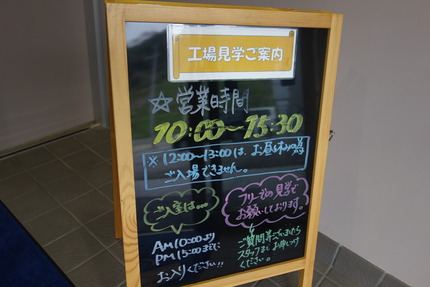 工場見学ご案内
☆営業時間
10:00～15:30
※12:00～13:00は、お昼休みの為
ご入場できません。
ご入室は…
AM10:00より
PM15:00までに
お入りください!!
フリーでの見学で
お願いしております。
ご質問等ございましたら
スタッフまでお申しつけ
ください。